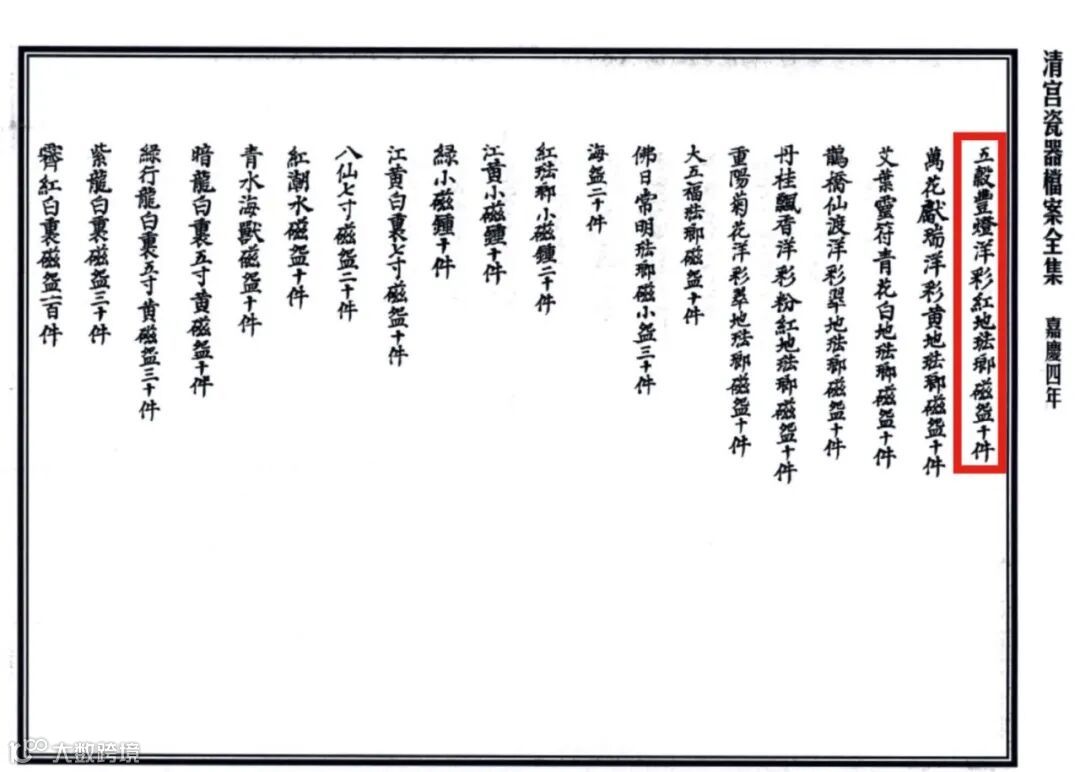 清宮瓷器檔案全集 嘉慶四年
五穀豐燈洋彩紅地琺瑯磁盌十件
萬花獻瑞洋彩黃地琺瑯磁盌十件
艾葉靈符青花白地琺瑯磁盌十件
鵲橋仙渡洋彩翠地琺瑯磁盌十件
丹桂飄香洋彩粉紅地琺瑯磁盌十件
重陽菊花洋彩翠地琺瑯磁盌十件
大五福琺瑯磁盌十件
佛日常明琺瑯磁小盌三十件
海盌二十件
紅琺瑯小磁鍾二十件
江黃小磁鍾十件
綠小磁鍾十件
江黃白裏七寸磁盌十件
八仙七寸磁盌二十件
紅潮水磁盌十件
青水海獸磁盌十件
暗龍白裏五寸黃磁盌十件
綠行龍白裏五寸黃磁盌三十件
紫龍白裏磁盌三十件
霽紅白裏磁盌一百件
大数跨境